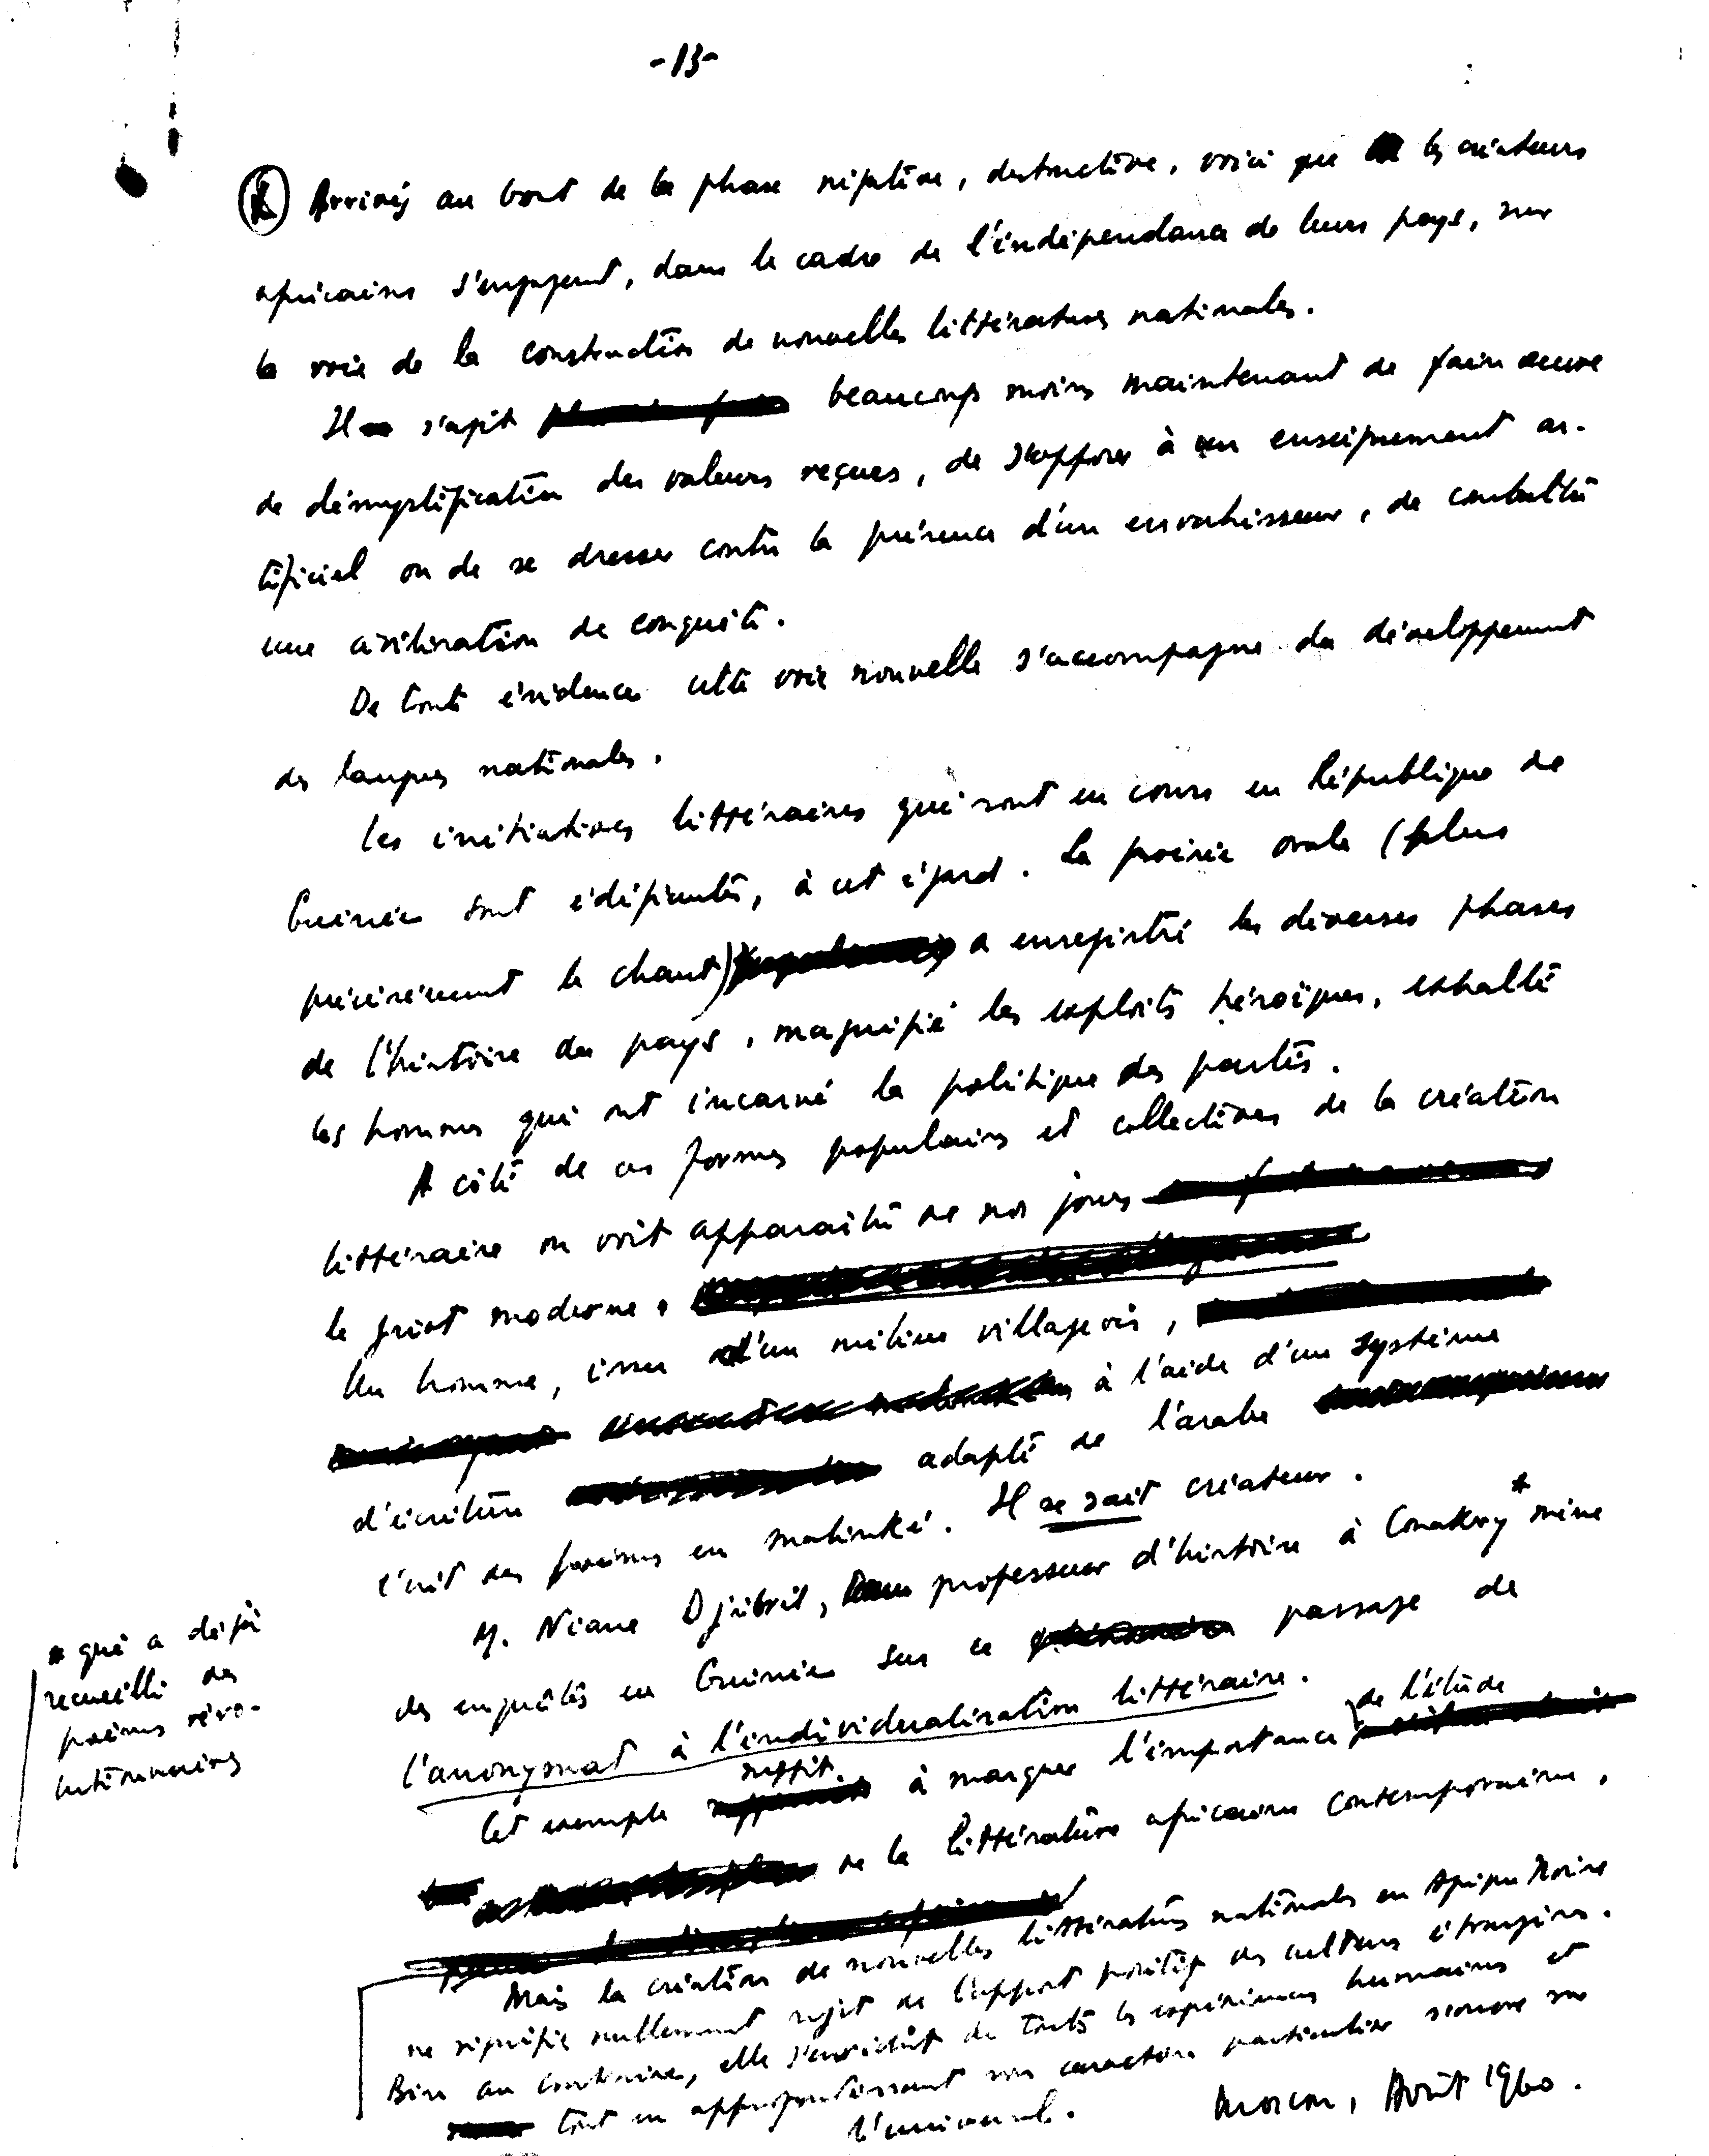 -13-
Arrivés au bout de la phase négative, destructive, voici que les créateurs
africains s'engagent, dans le cadre de l'indépendance de leurs pays, sur
la voie de la construction de nouvelles littératures nationales.
Il s'agit beaucoup moins maintenant de faire œuvre
de démystification des valeurs reçues, de s'opposer à un enseignement ar-
tificiel ou de se dresser contre la présence d'un envahisseur, de combattre
une civilisation de conquête.
De toute évidence cette voie nouvelle s'accompagne du développement
des langues nationales.
Les initiatives littéraires qui sont en cours en République de
Guinée sont édifiantes, à cet égard. La poésie orale (plus
précisément le chant) a enregistré les diverses phases
de l'histoire du pays, magnifié les exploits héroïques, exhalté
les hommes qui ont incarné la politique des partis.
A côté de ces formes populaires et collectives de la création
littéraire on voit apparaître de nos jours
le griot moderne.
Un homme, issu d'un milieu villageois,
à l'aide d'un système
d'écriture adapté de l'arabe
écrit des poèmes en malinké. Il se sait créateur.
M. Niane Djibril, professeur d'histoire à Conakry * mène
des enquêtes en Guinée sur ce passage de
l'anonymat à l'individualisation littéraire.
* qui a déjà
recueilli des
poèmes révo-
lutionnaires
Cet exemple suffit à marquer l'importance de l'étude
de la littérature africaine contemporaine,
Mais la création de nouvelles littératures nationales en Afrique Noire
ne signifie nullement rejet de l'apport positif des cultures étrangères.
Bien au contraire, elle s'enrichit de toutes les expériences humaines et
tout en approfondissant son caractère particulier s'ouvre sur
l'universel.
Moscou, Août 1960.